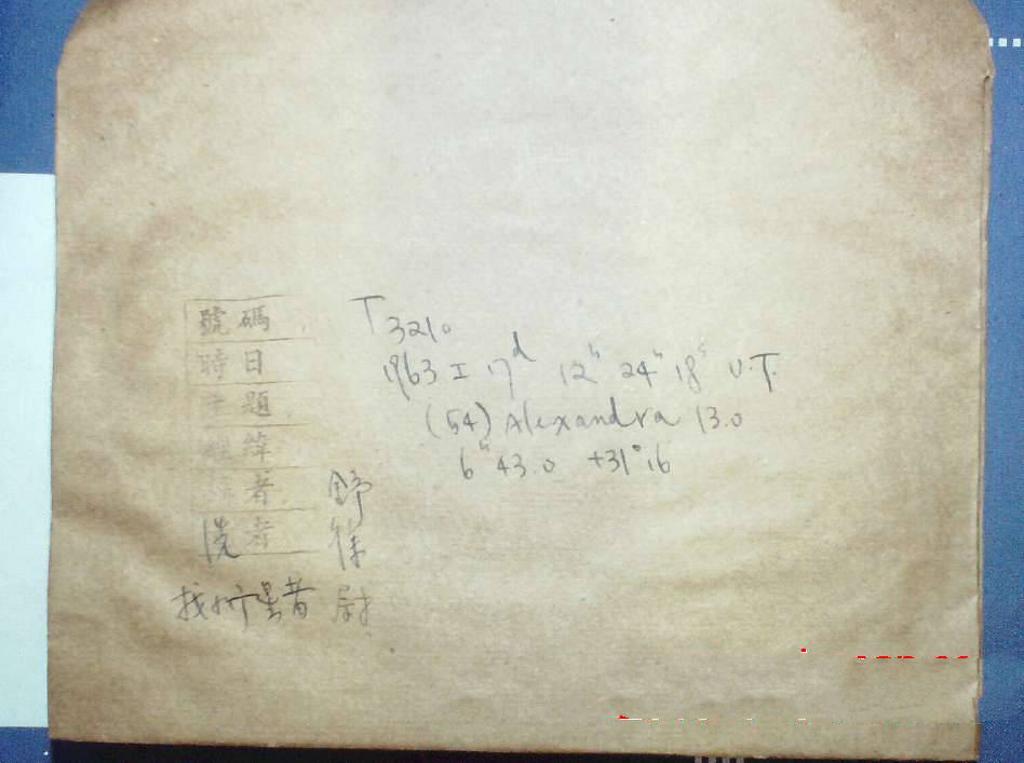 號碼 T 3210
時日 1963 I 17ᵈ 12ʰ 24ᵐ 18ˢ U.T.
題 (54) Alexandra 13.0
緯 6ʰ 43.0 +31°16
者 舒
洗者 徐
找小行星者 尉